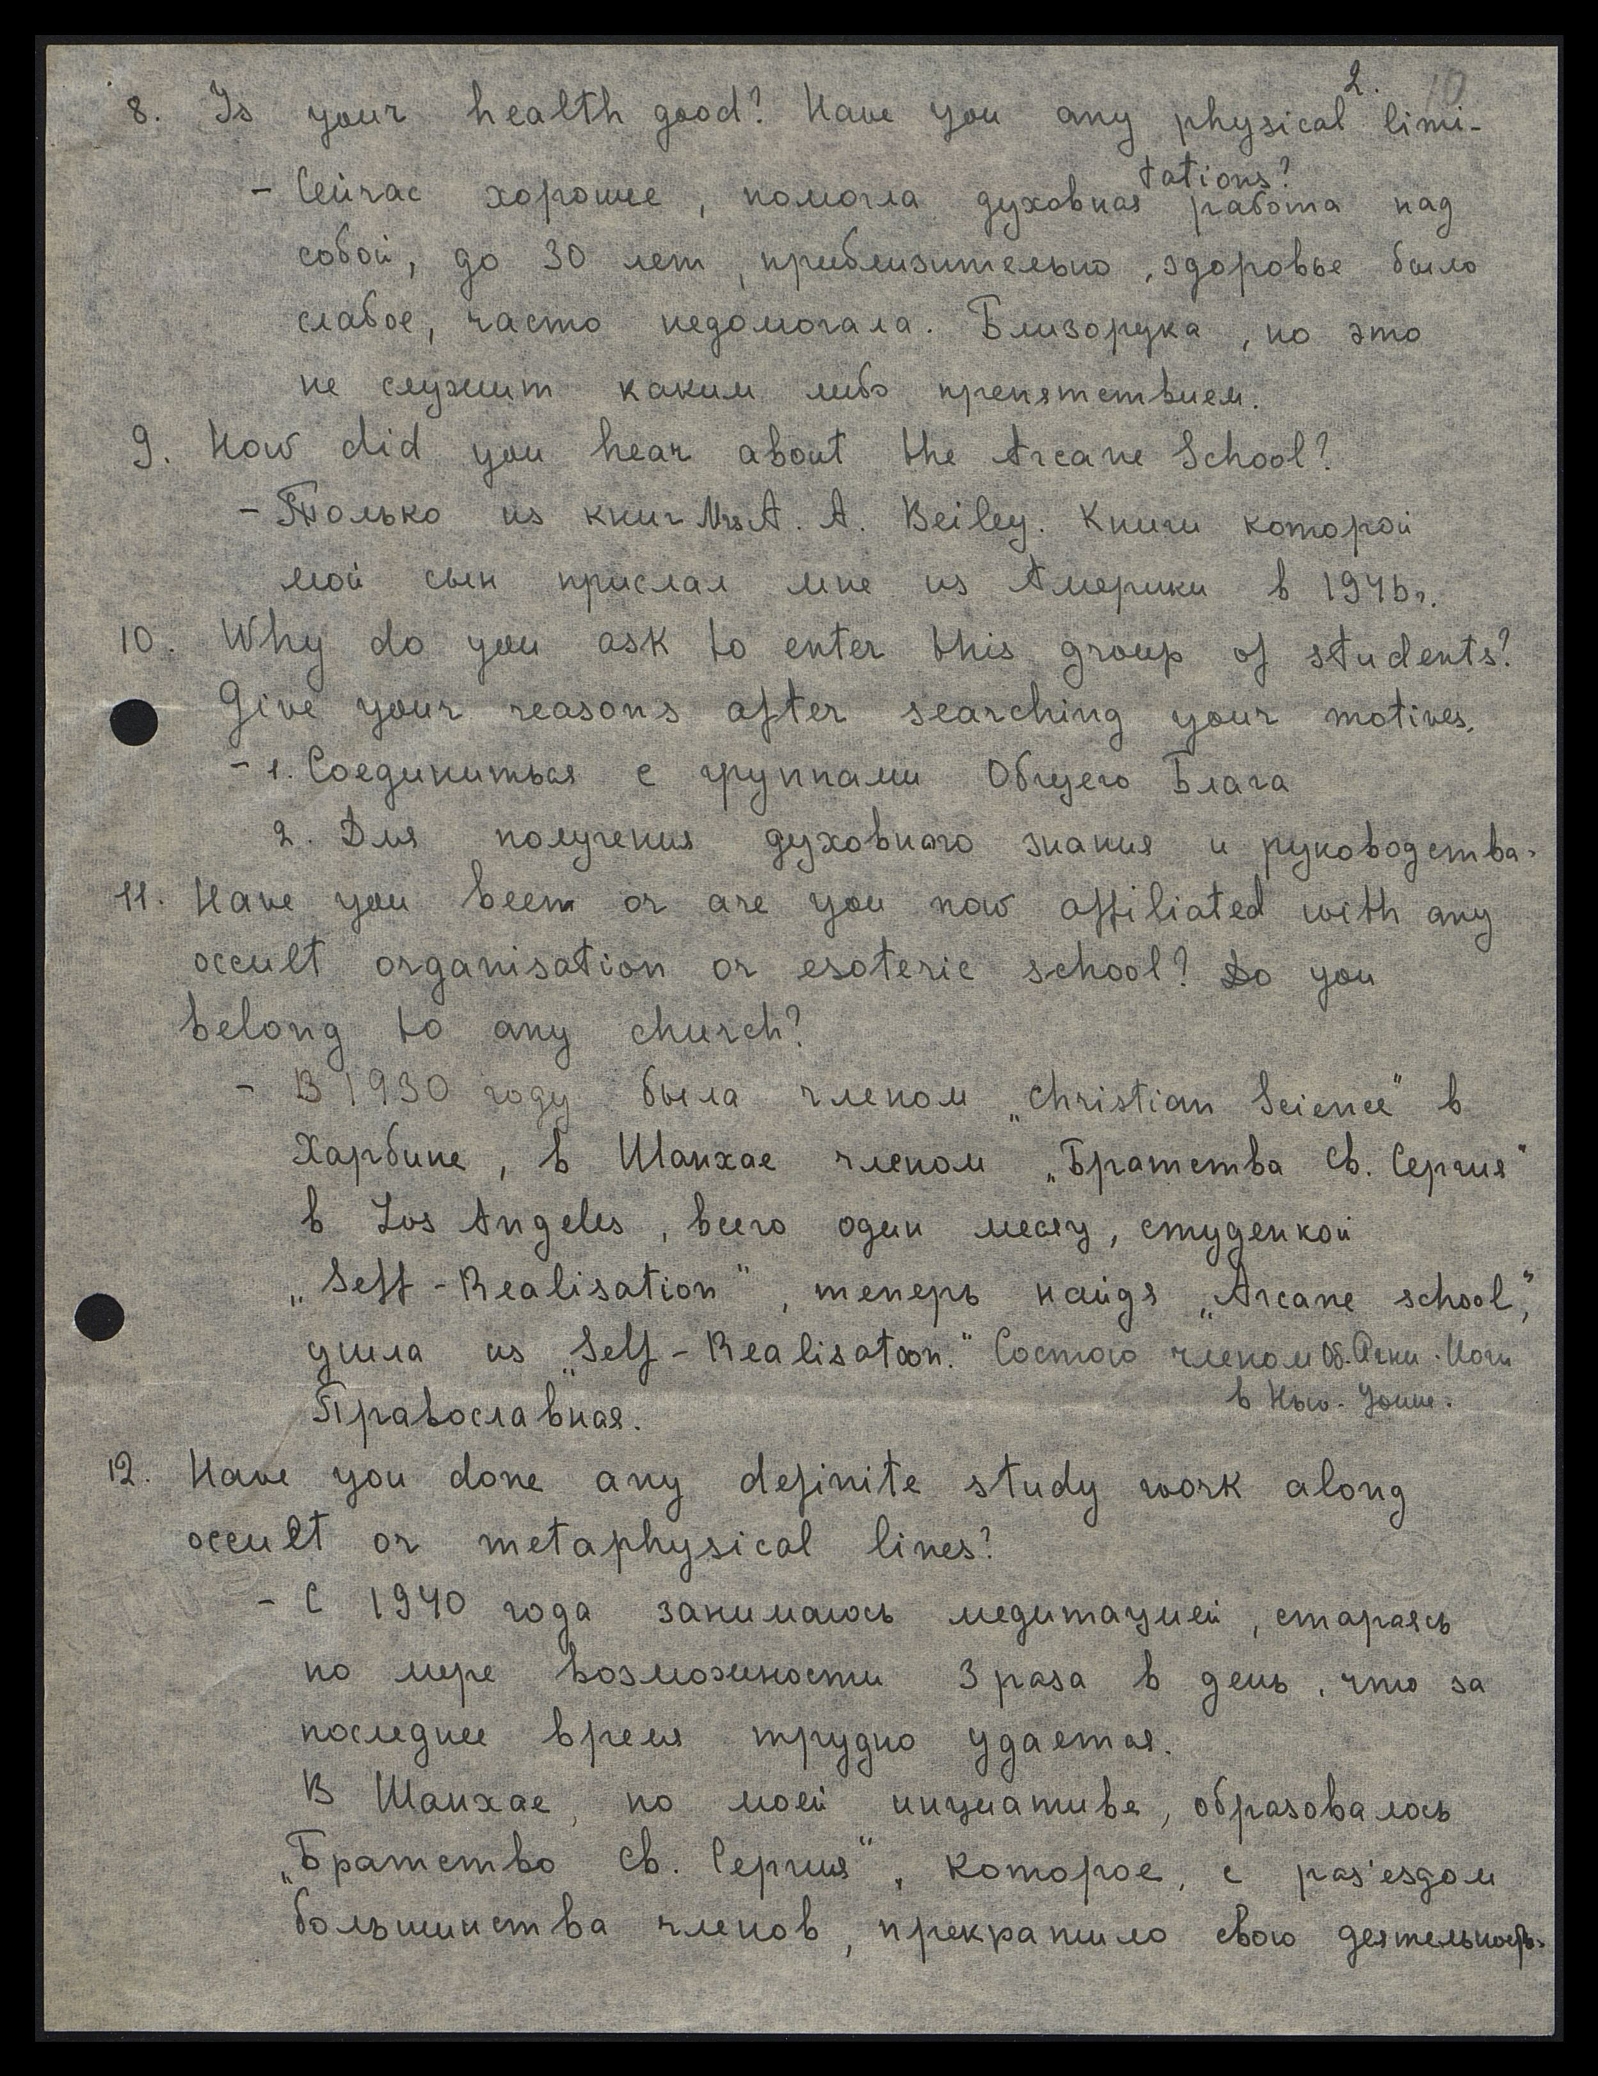 2. 10
8. Is your health good? Have you any physical limi-
tations?
- Сейчас хорошее, помогла духовная работа над
собой, до 30 лет, приблизительно, здоровье было
слабое, часто недомогала. Близорука, но это
не служит каким либо препятствием.
9. How did you hear about the Arcane School?
- Только из книг Mrs A. A. Beiley. Книги которой
мой сын прислал мне из Америки в 1946г.
10. Why do you ask to enter this group of students?
Give your reasons after searching your motives.
- 1. Соединиться с группами Общего Блага
2. Для получения духовного знания и руководства.
11. Have you been or are you now affiliated with any
occult organisation or esoteric school? Do you
belong to any church?
- В 1930 году была членом „Christian Science" в
Харбине, в Шанхае членом „Братства Св. Сергия"
в Los Angeles, всего один месяц, студенкой
„Self-Realisation", теперь найдя „Arcane school",
ушла из „Self-Realisation." Состою членом Об. Агни-Иоги
в Нью-Йорке.
Православная.
12. Have you done any definite study work along
occult or metaphysical lines?
- С 1940 года занимаюсь медитацией, стараясь
по мере возможности 3 раза в день, что за
последнее время трудно удается.
В Шанхае, по моей инциативе, образовалось
„Братство Св. Сергия", которое, с раз'ездом
большинства членов, прекратило свою деятельность.